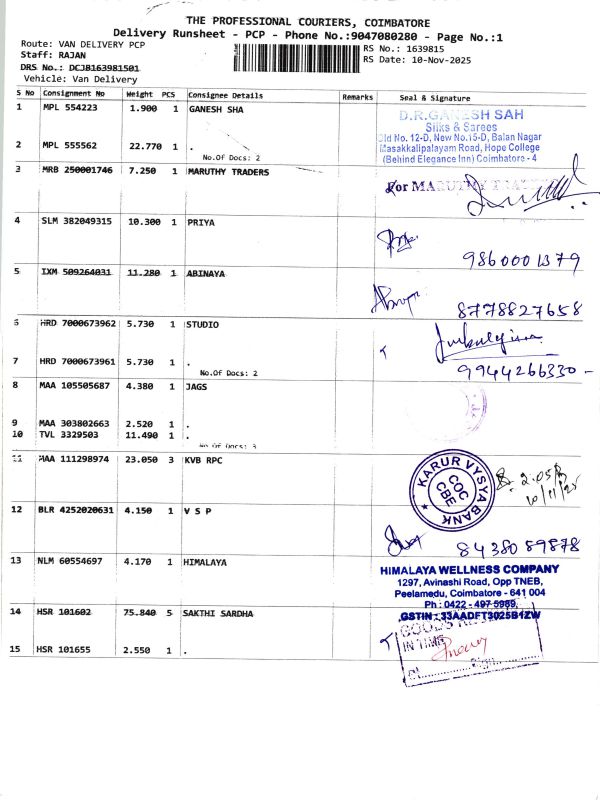 THE PROFESSIONAL COURIERS, COIMBATORE
Delivery Runsheet - PCP - Phone No.:9047080280 - Page No.:1
Route: VAN DELIVERY PCP
RS No.: 1639815
Staff: RAJAN
RS Date: 10-Nov-2025
DRS No.: DCJB163981501
Vehicle: Van Delivery
S No Consignment No Weight PCS Consignee Details Remarks Seal & Signature
1 MPL 554223 1.900 1 GANESH SHA
D.R.GANESH SAH
Silks & Sarees
Old No. 12-D, New No.15-D, Balan Nagar
2 MPL 555562 22.770 1 .
Masakkalipalayam Road, Hope College
No.Of Docs: 2
(Behind Elegance Inn) Coimbatore - 4
3 MRB 250001746 7.250 1 MARUTHY TRADERS
For MARUTHY
4 SLM 382049315 10.300 1 PRIYA
9860001379
5 IXM 509264031 11.280 1 ABINAYA
8778827658
6 HRD 7000673962 5.730 1 STUDIO
7 HRD 7000673961 5.730 1 .
No.Of Docs: 2
9944266330 -
8 MAA 105505687 4.380 1 JAGS
9 MAA 303802663 2.520 1 .
10 TVL 3329503 11.490 1 .
No Of Docs: 3
11 MAA 111298974 23.050 3 KVB RPC
KARUR VYSYA BANK
COC
CBE
10/11/25
12 BLR 4252020631 4.150 1 V S P
8438089878
13 NLM 60554697 4.170 1 HIMALAYA
HIMALAYA WELLNESS COMPANY
1297, Avinashi Road, Opp TNEB,
Peelamedu, Coimbatore - 641 004
Ph : 0422 - 497 5989,
14 HSR 101602 75.840 5 SAKTHI SARDHA
GSTIN : 33AADFT3025B1ZW
GOODS
IN TIME
15 HSR 101655 2.550 1 .
Sign